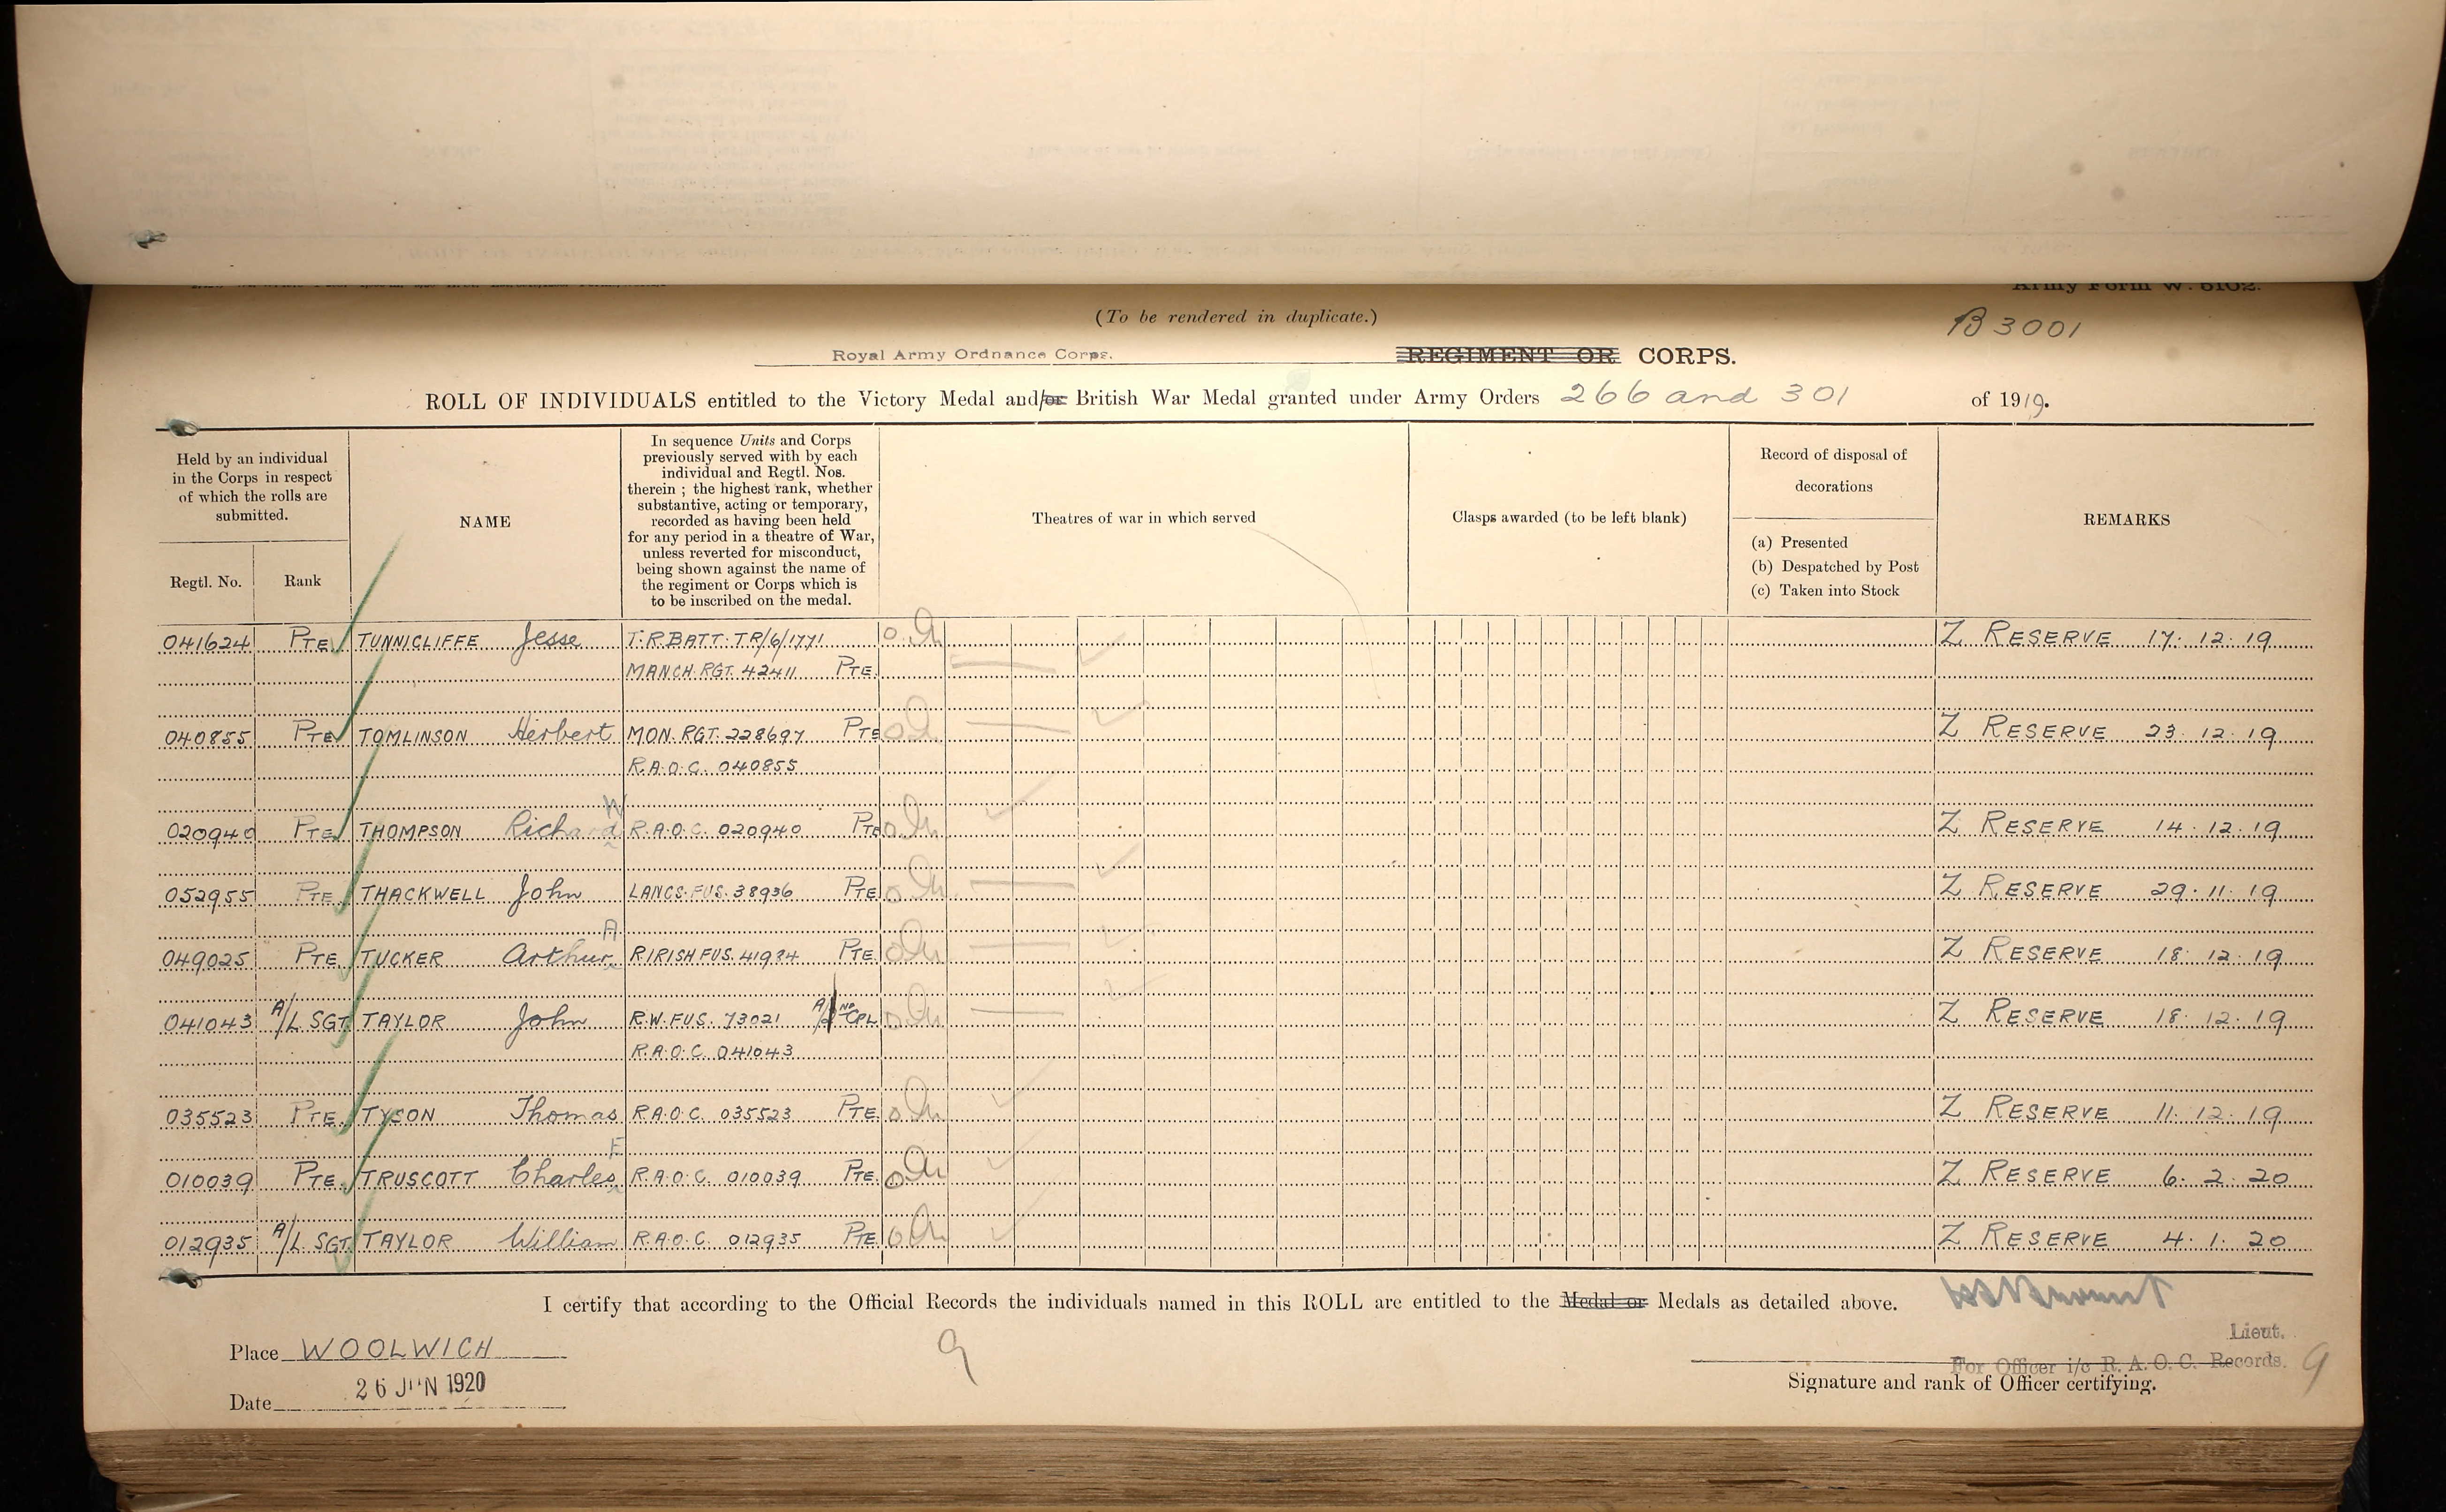 Army Form W. 5102.
(To be rendered in duplicate.)
B 3001
Royal Army Ordnance Corps. REGIMENT OR CORPS.
ROLL OF INDIVIDUALS entitled to the Victory Medal and/or British War Medal granted under Army Orders 266 and 301 of 1919.
Held by an individual
in the Corps in respect
of which the rolls are
submitted.
Regtl. No.
Rank
NAME
In sequence Units and Corps
previously served with by each
individual and Regtl. Nos.
therein ; the highest rank, whether
substantive, acting or temporary,
recorded as having been held
for any period in a theatre of War,
unless reverted for misconduct,
being shown against the name of
the regiment or Corps which is
to be inscribed on the medal.
Theatres of war in which served
Clasps awarded (to be left blank)
Record of disposal of
decorations
(a) Presented
(b) Despatched by Post
(c) Taken into Stock
REMARKS
041624 PTE TUNNICLIFFE Jesse T.R.BATT. TR/6/1771 Z RESERVE 17. 12. 19
MANCH. RGT. 42411 PTE.
040855 PTE TOMLINSON Herbert MON. RGT. 228697 PTE Z RESERVE 23. 12. 19
R.A.O.C. 040855
W
020940 PTE THOMPSON Richard R.A.O.C. 020940 PTE Z RESERVE 14. 12. 19
052955 PTE THACKWELL John LANCS. FUS. 38936 PTE Z RESERVE 29. 11. 19
A
049025 PTE. TUCKER Arthur R IRISH FUS. 41984 PTE. Z RESERVE 18. 12. 19
041043 A/L SGT TAYLOR John R.W. FUS. 73021 CPL Z RESERVE 18. 12. 19
R.A.O.C. 041043
035523 PTE. TYSON Thomas R.A.O.C. 035523 PTE. Z RESERVE 11. 12. 19
F
010039 PTE. TRUSCOTT Charles R.A.O.C. 010039 PTE. Z RESERVE 6. 2. 20
012935 A/L SGT TAYLOR William R.A.O.C. 012935 PTE. Z RESERVE 4. 1. 20
I certify that according to the Official Records the individuals named in this ROLL are entitled to the Medal or Medals as detailed above.
Place WOOLWICH
9
Lieut.
For Officer i/c R. A. O. C. Records. 9
Signature and rank of Officer certifying.
Date 26 JUN 1920